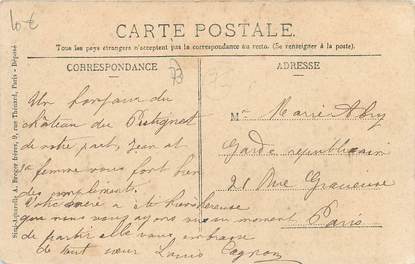 10 €
CARTE POSTALE.
Tous les pays étrangers n'acceptent pas la correspondance au recto. (Se renseigner à la poste).
CORRESPONDANCE
Un bonjour du
château du
de votre part, Jean et
sa femme vous font bien
des compliments.
Votre a été heureuse
que nous vous ayons au moment
de partir elle vous embrasse
de tout cœur Louis
ADRESSE
Mr Marie Abry
Garde républicain
21 Rue Gracieuse
Paris
A. Berger frères, 9, rue Thénard, Paris - Déposé